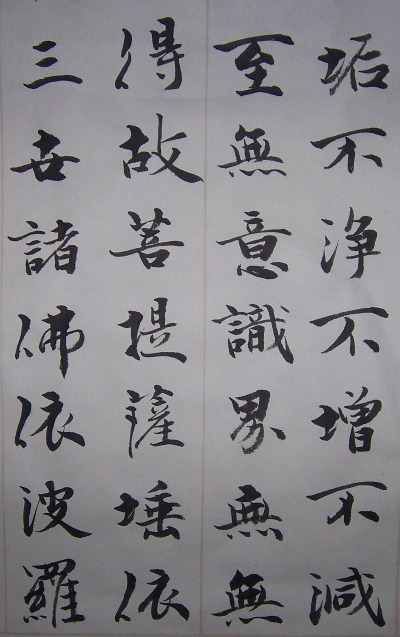 垢不浄不增不減
至無意識界無無
得故菩提薩埵依
三世諸佛依波羅